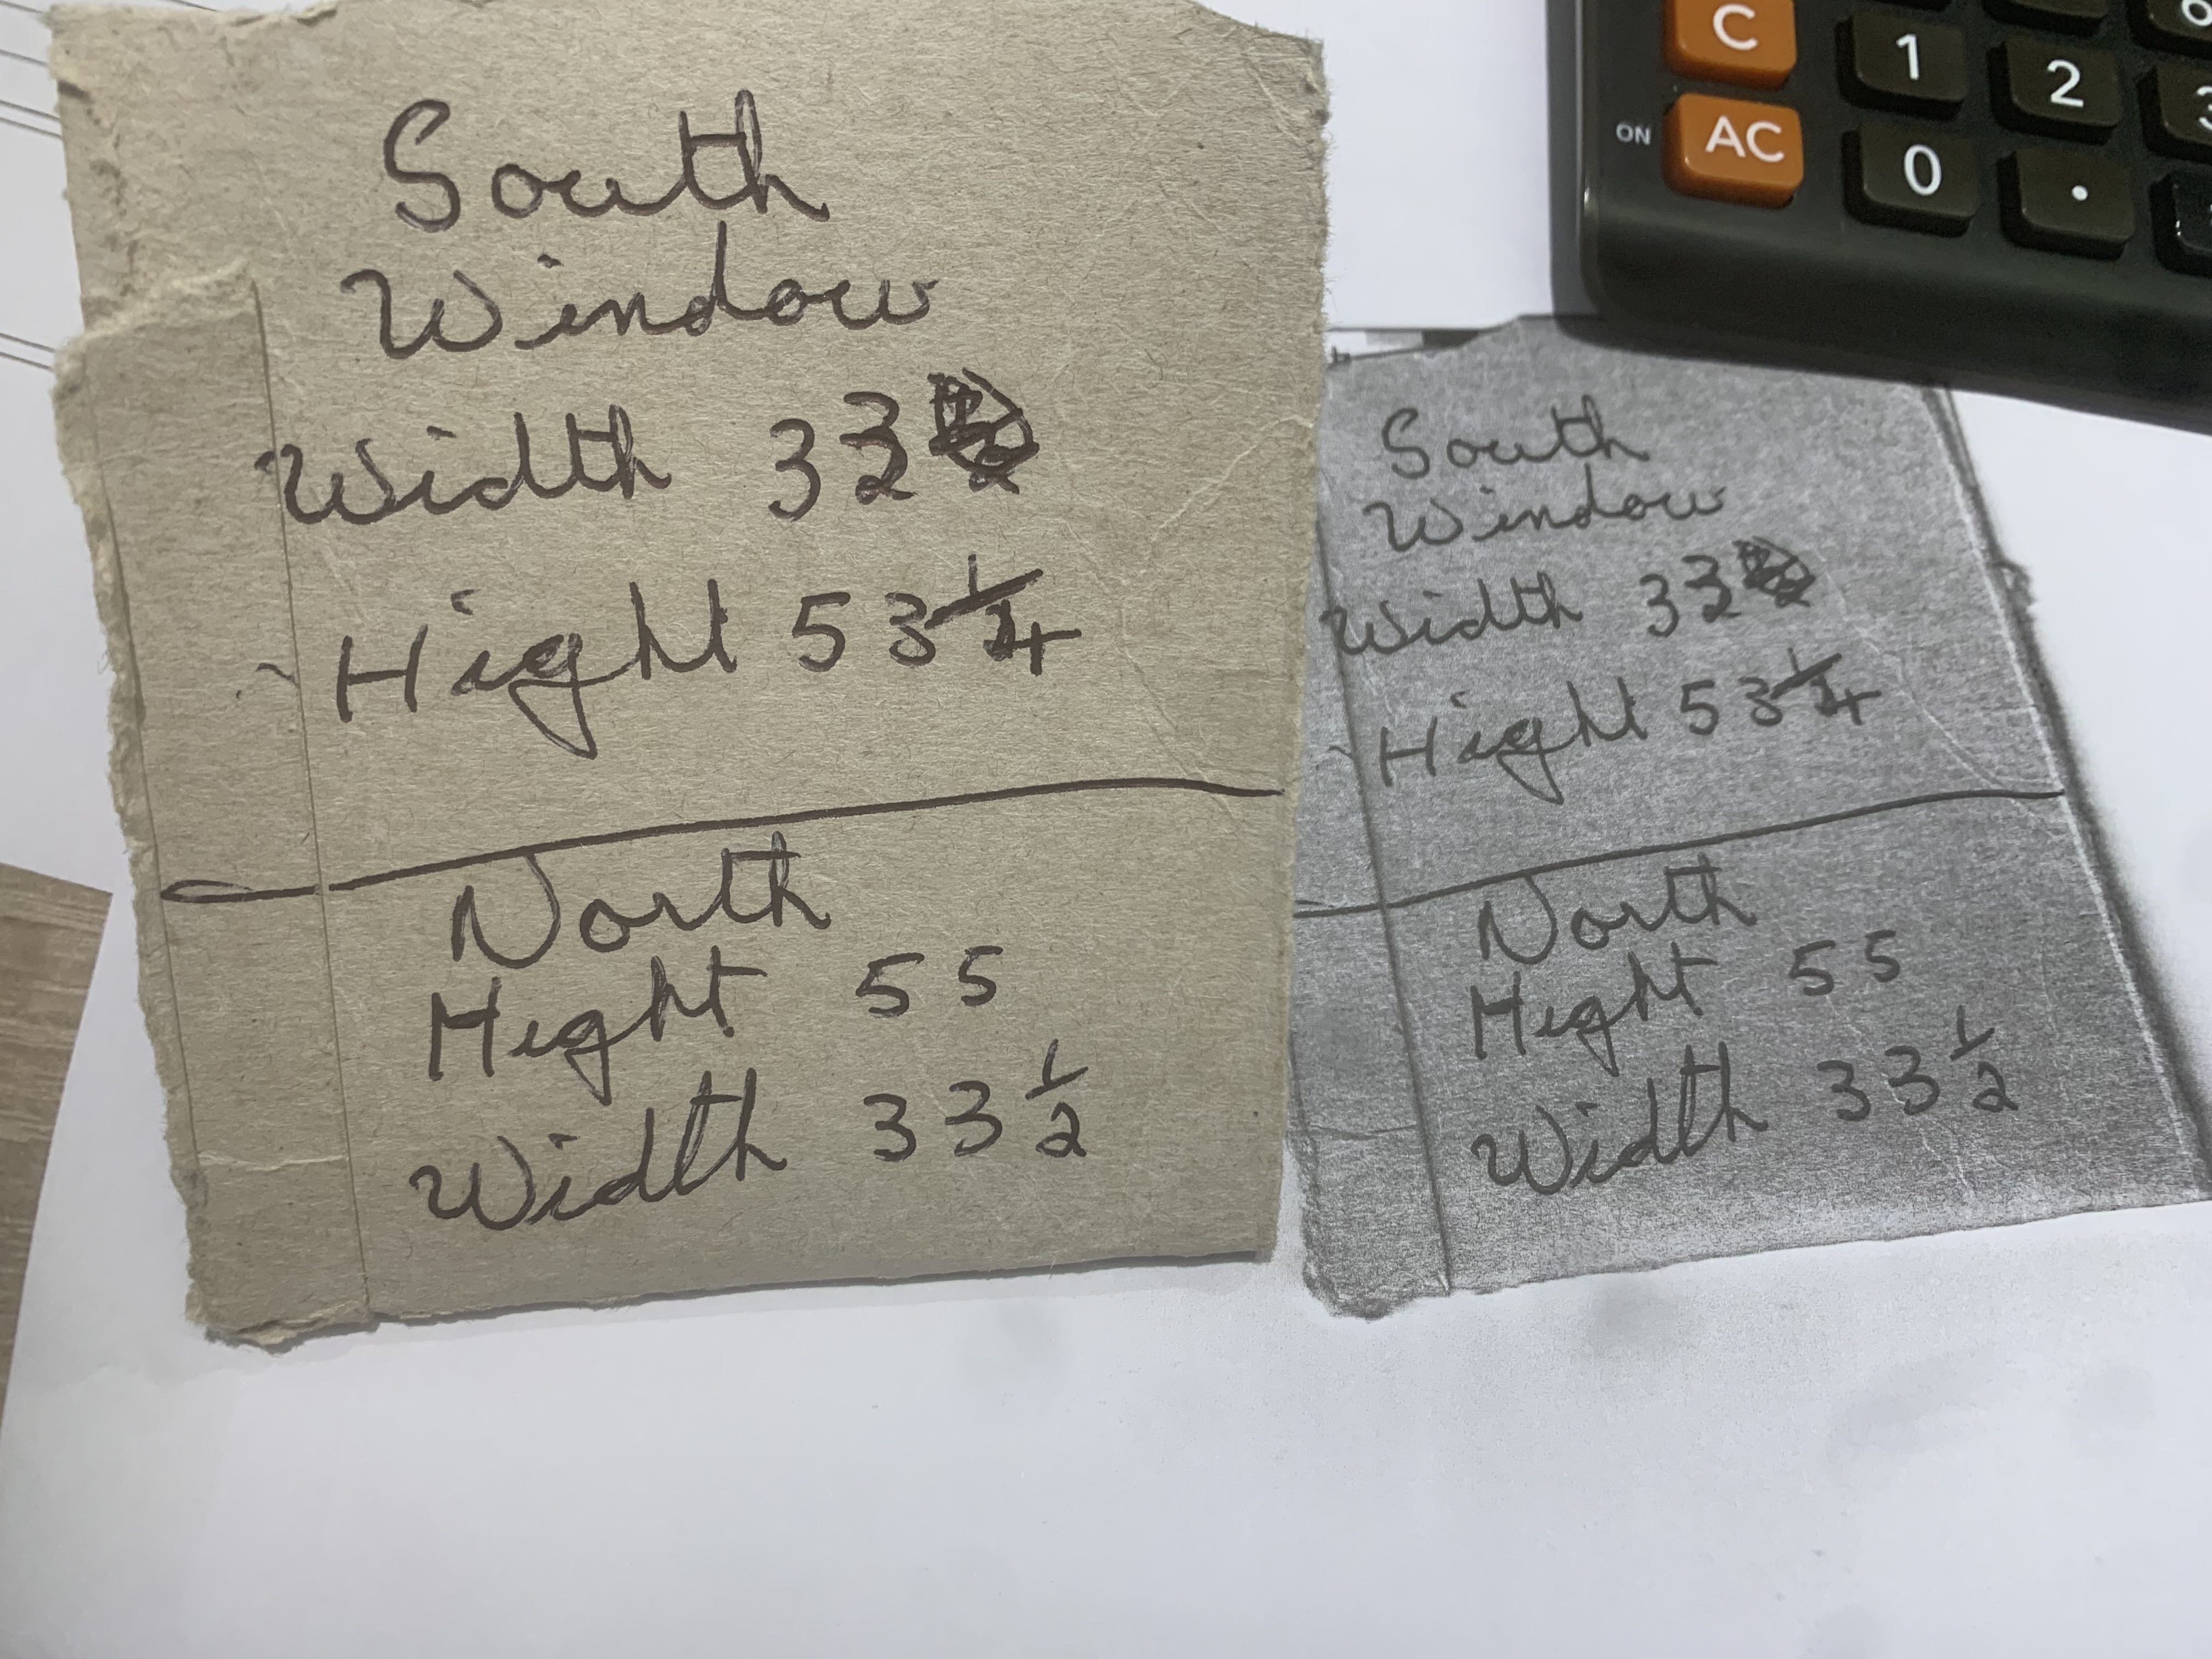 South
Window
Width 33
Hight 53 1/4
North
Hight 55
Width 33 1/2
South
Window
Width 33
Hight 53 1/4
North
Hight 55
Width 33 1/2
C 1 2
ON AC 0 .